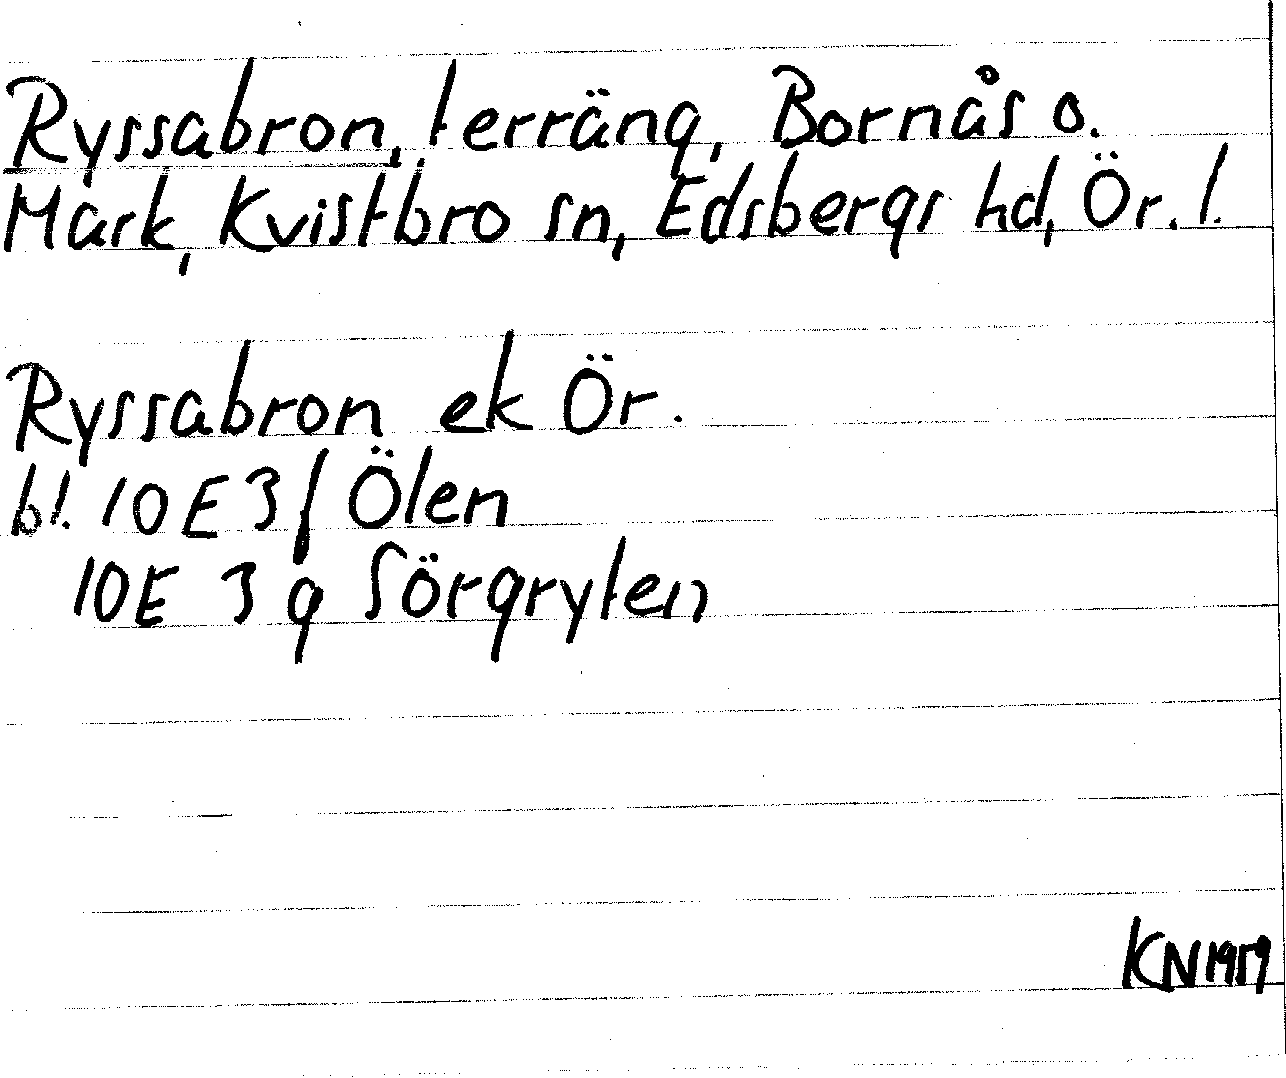 Ryssabron, terräng, Bornås o.
Mark, Kvistbro sn, Edsbergs hd, Ör. l.
Ryssabron ek Ör.
bl. 10 E 3 f Ölen
10E 3 g Sörgryten
KN 1959